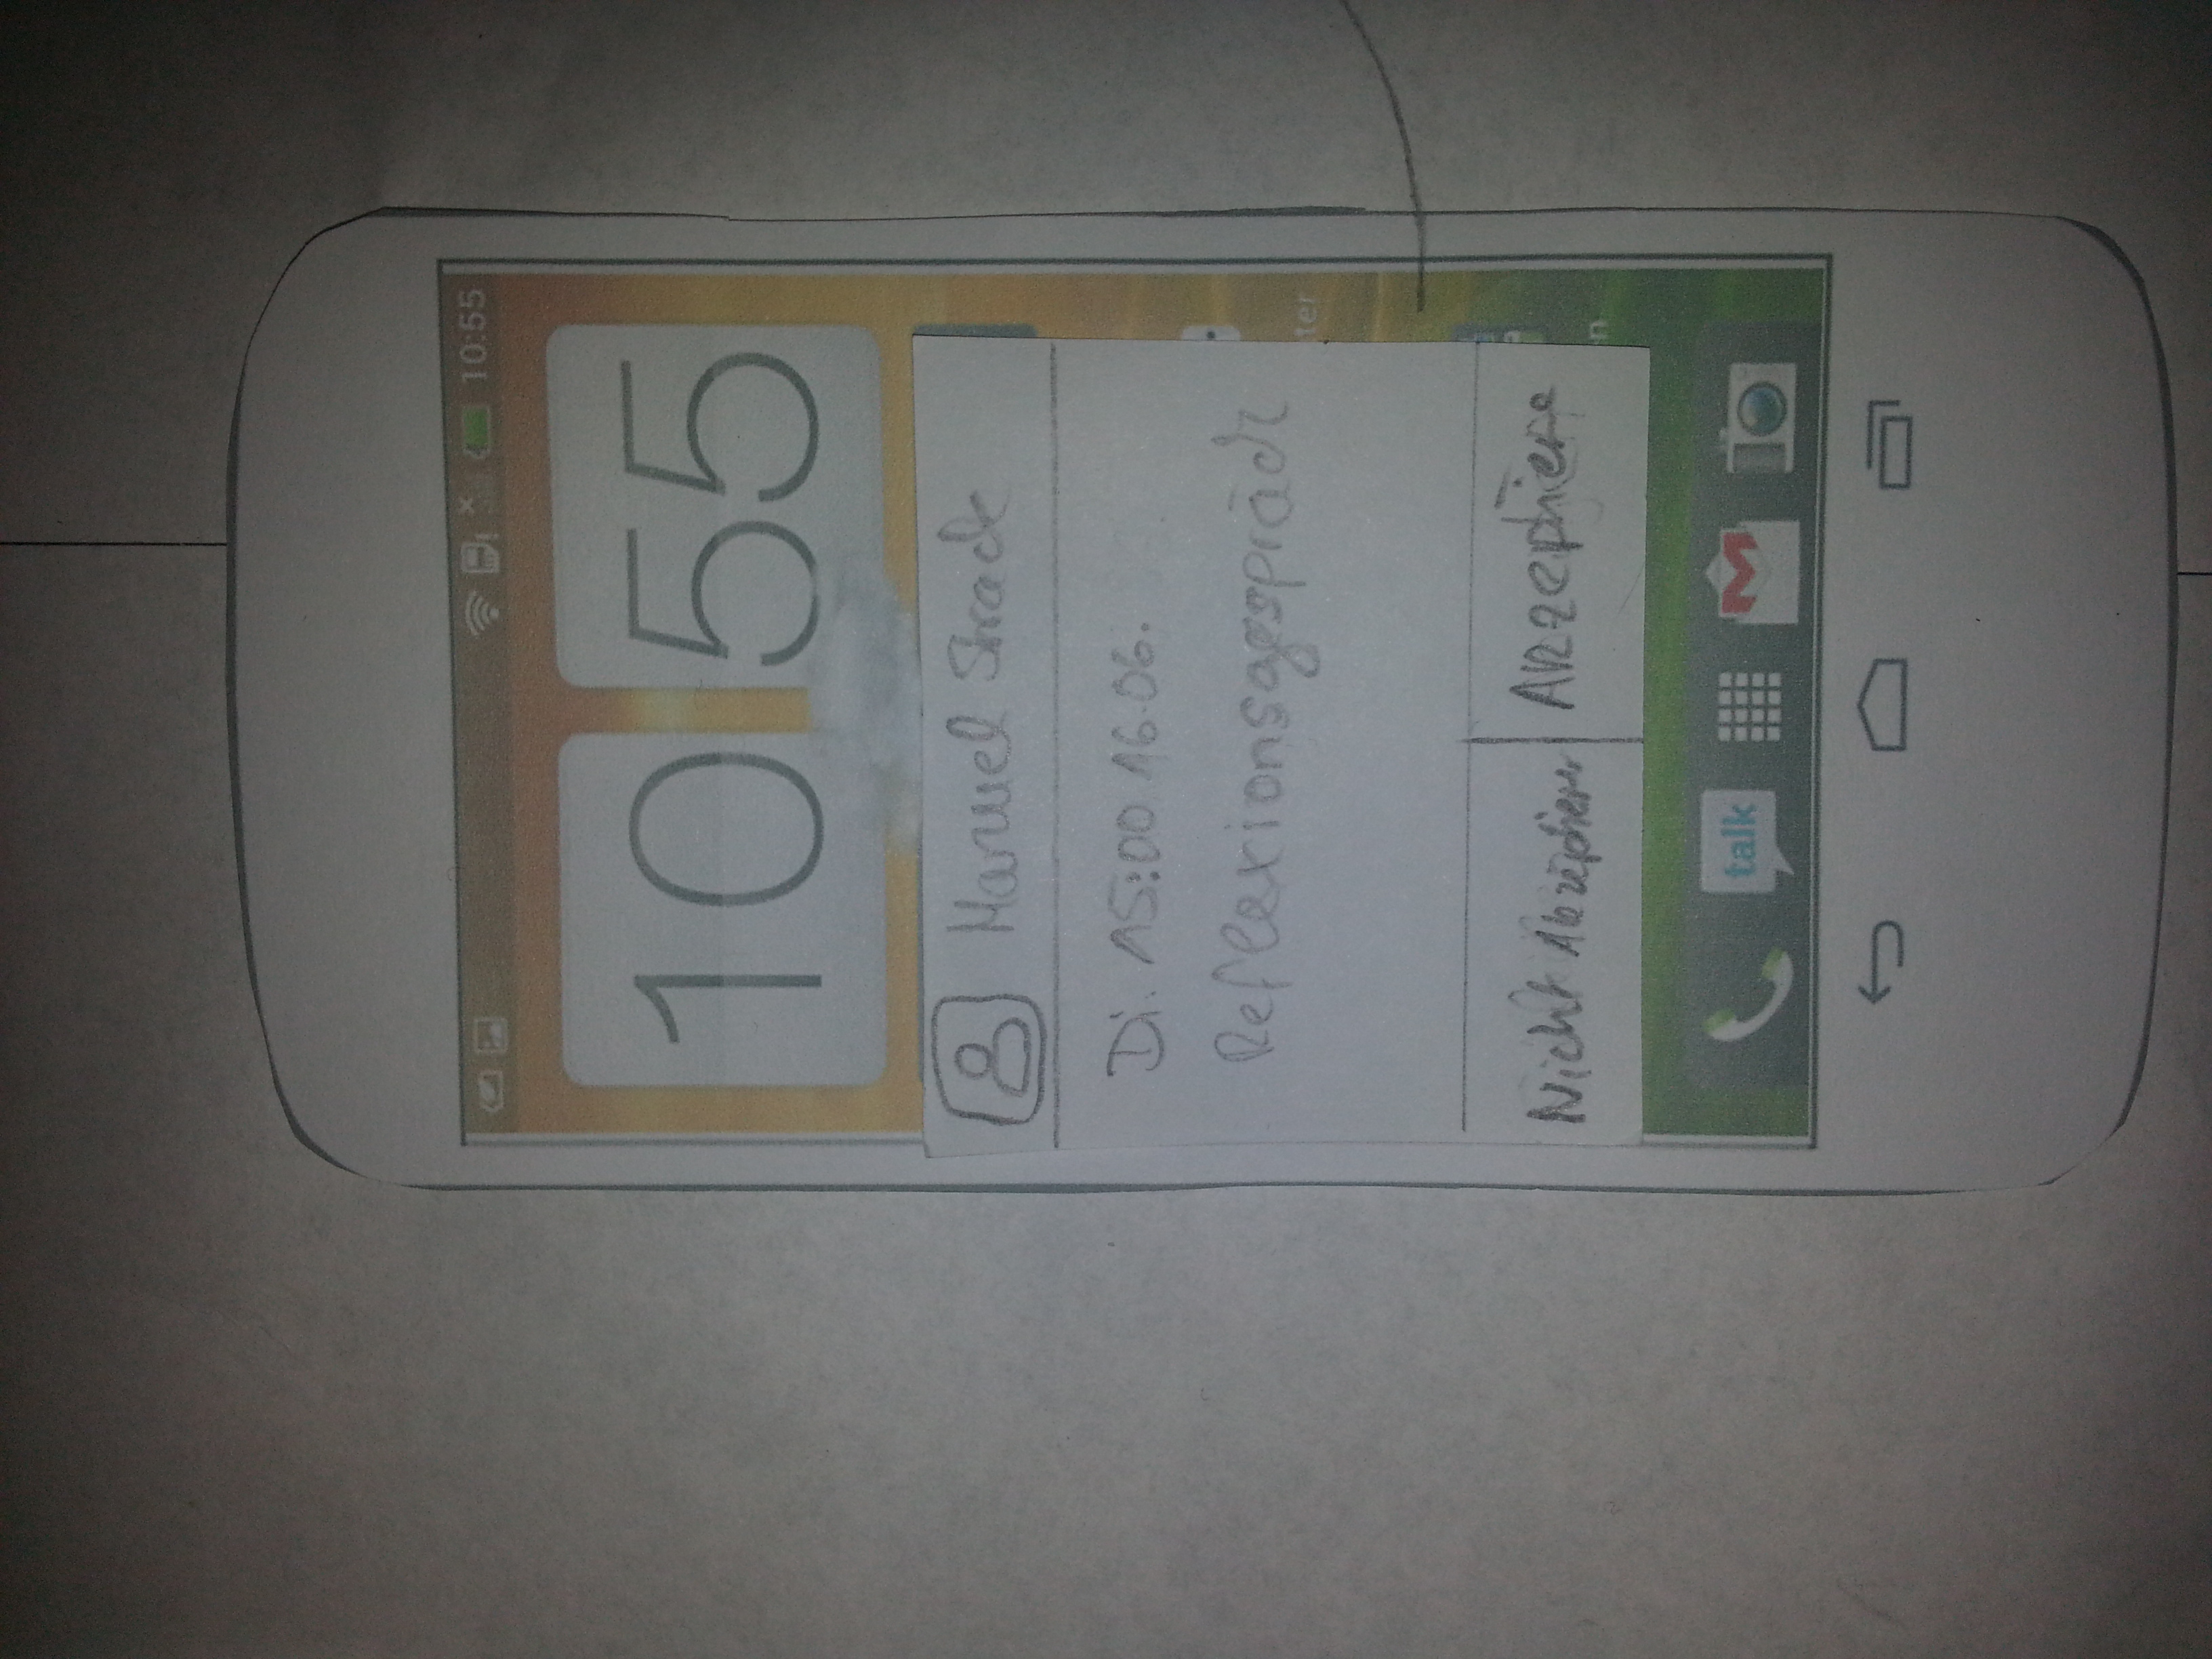 10:55
10 55
Manuel Strack
Di. 15:00 16.06.
Reflexionsgespräch
Nicht Akzeptieren
Akzeptieren
ter
n
talk